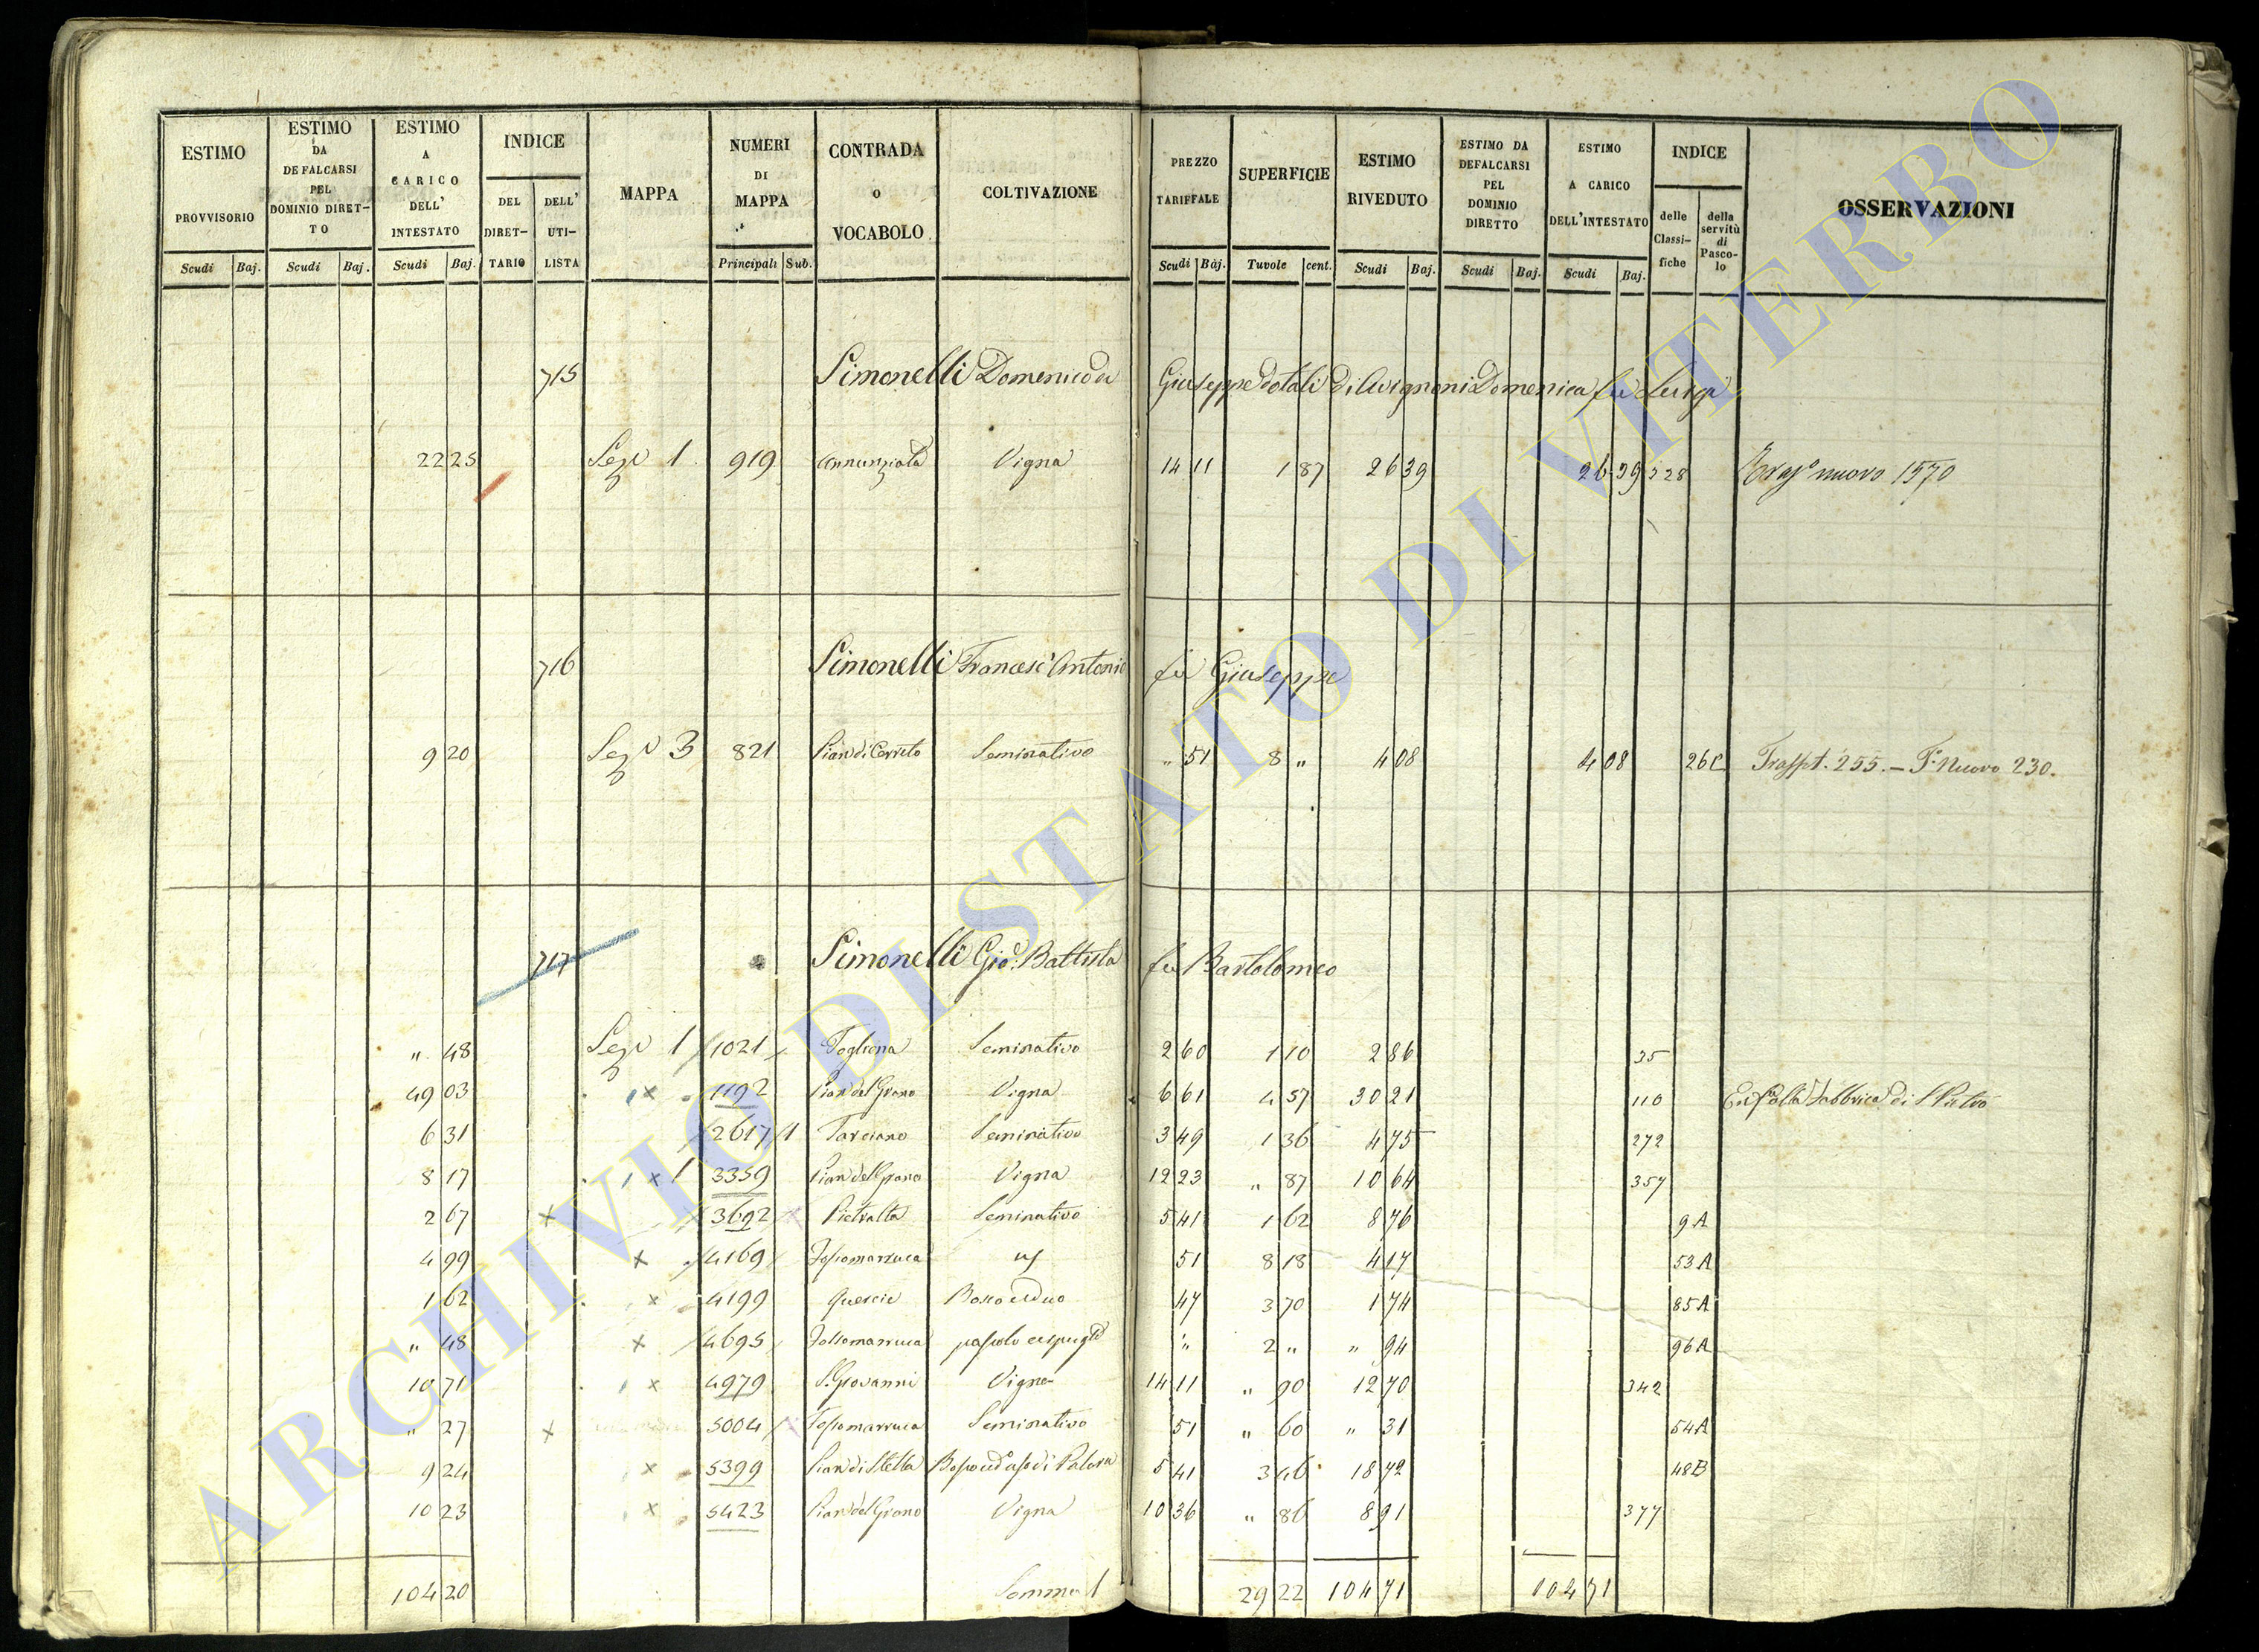 ESTIMO PROVVISORIO Scudi Baj.
ESTIMO DA DEFALCARSI PEL DOMINIO DIRET-TO Scudi Baj.
ESTIMO A CARICO DELL' INTESTATO Scudi Baj.
INDICE DEL DIRET-TARIO DELL' UTI-LISTA
MAPPA
NUMERI DI MAPPA Principali Sub.
CONTRADA o VOCABOLO
COLTIVAZIONE
PREZZO TARIFFALE Scudi Baj.
SUPERFICIE Tuvole cent.
ESTIMO RIVEDUTO Scudi Baj.
ESTIMO DA DEFALCARSI PEL DOMINIO DIRETTO Scudi Baj.
ESTIMO A CARICO DELL'INTESTATO Scudi Baj.
INDICE delle Classi-fiche della servitù di Pasco-lo
OSSERVAZIONI
715 Simonelli Domenico di Giuseppe dotali di Avignoni Domenica fu Luigi
22 25 Sezne 1 919 Annunziata Vigna 14 11 1 87 26 39 26 39 328 nuovo 1570
716 Simonelli Francesc'Antonio fu Giuseppe
9 20 Sezne 3 821 Pian di Cerreto Seminativo " 51 8 " 4 08 4 08 26C Traspt. 255. — F. Nuovo 230.
717 Simonelli Gio. Battista fu Bartolomeo
" 48 Sezne 1 1021 Fogliana Seminativo 2 60 1 10 2 86 35
49 03 1 x 1192 Pian del Grano Vigna 6 61 4 57 30 21 110 Enfca alla Fabbrica di S Pietro
6 31 2617 1 Tarciano Seminativo 3 49 1 36 4 75 272
8 17 1 x 1 3359 Pian del Grano Vigna 12 23 " 87 10 64 357
2 67 x 3692 Pietralta Seminativo 5 41 1 62 8 76 9A
4 99 x 4169 Fossomarruca 51 8 18 4 17 53A
1 62 x 4199 Quercie Bosco ceduo 47 3 70 1 74 85A
" 48 x 4695 Fossomarruca pascolo cespuglto " 2 " " 94 96A
10 71 1 x 4979 S. Giovanni Vigna 14 11 " 90 12 70 342
" 27 x 5004 Fossomarruca Seminativo 51 " 60 " 31 54A
9 24 x 5399 Pian di Stella Bosco cedo di Palara 5 41 3 46 18 72 48B
10 23 x 5423 Pian del Grano Vigna 10 36 " 86 8 91 377
104 20 Somma 29 22 104 71 104 71
ARCHIVIO DI STATO DI VITERBO